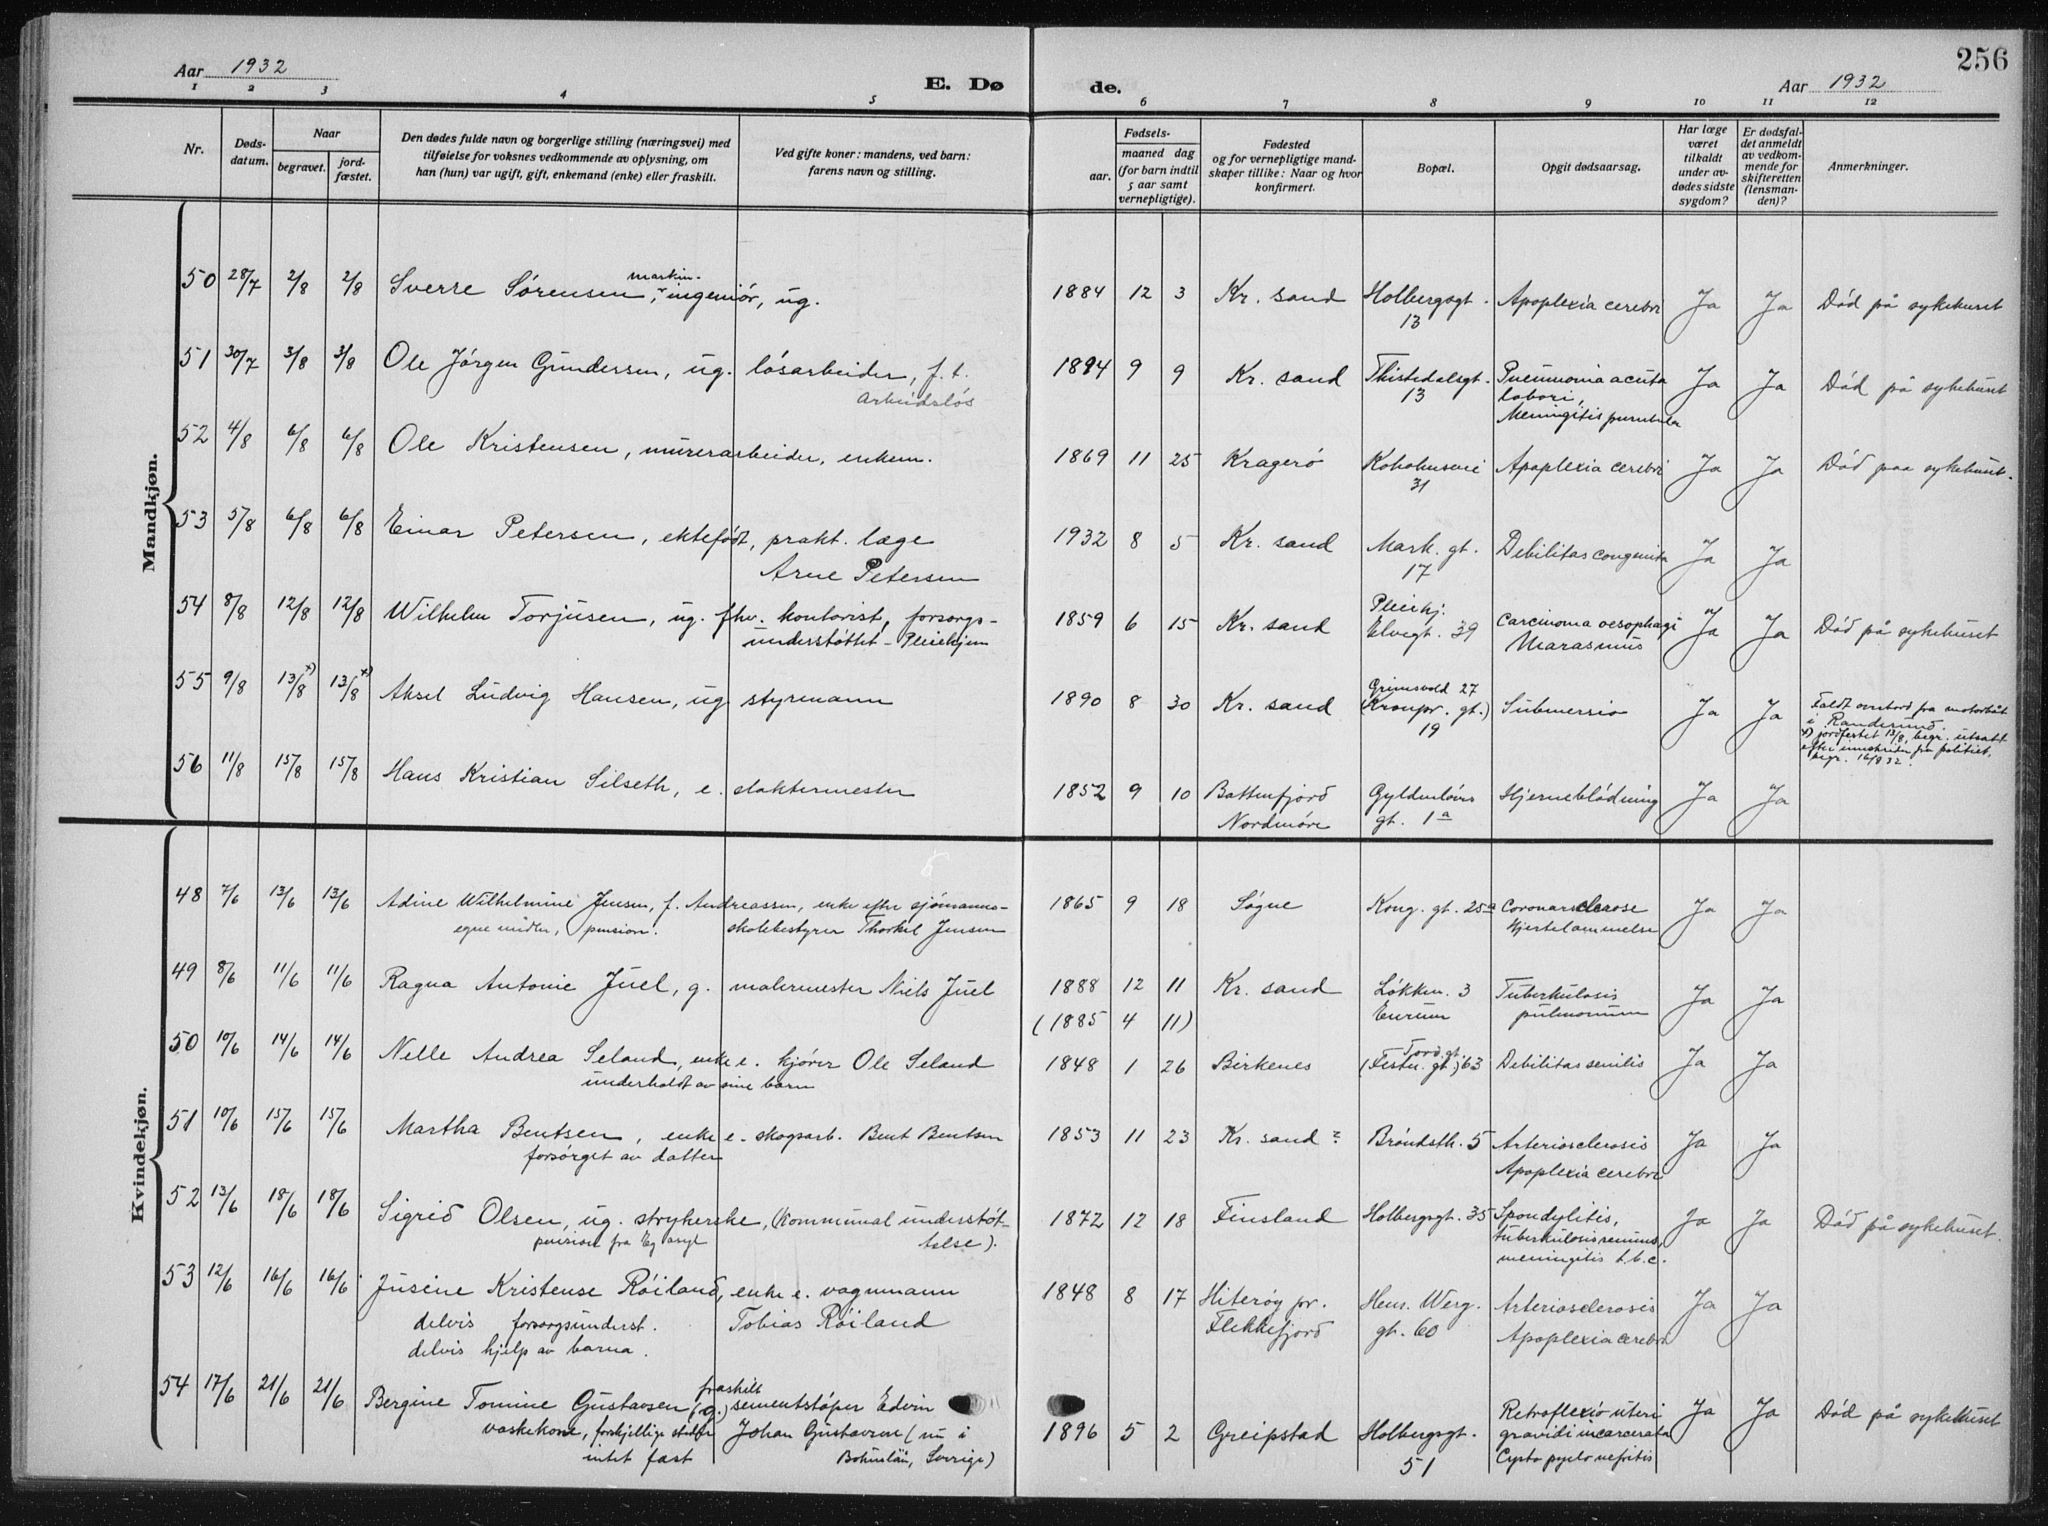 256
Aar 1932
E. Dø
de.
Aar 1932
1 2 3 4 5 6 7 8 9 10 11 12
Nr.
Døds-
datum.
Naar
begravet.
jord-
fæstet.
Den dødes fulde navn og borgerlige stilling (næringsvei) med
tilføielse for voksnes vedkommende av oplysning, om
han (hun) var ugift, gift, enkemand (enke) eller fraskilt.
Ved gifte koner: mandens, ved barn:
farens navn og stilling.
Fødsels-
aar.
maaned dag
(for barn indtil
5 aar samt
vernepligtige).
Fødested
og for vernepligtige mand-
skaper tillike: Naar og hvor
konfirmert.
Bopæl.
Opgit dødsaarsag.
Har læge
været
tilkaldt
under av-
dødes sidste
sygdom?
Er dødsfal-
det anmeldt
av vedkom-
mende for
skifteretten
(lensman-
den)?
Anmerkninger.
Mandkjøn.
50 28/7 2/8 2/8 Sverre Sørensen, maskin-
ingeniør, ug. 1884 12 3 Kr. sand Holbergsgt. Apoplexia cerebri Ja Ja Død på sykehuset
13
51 30/7 3/8 3/8 Ole Jørgen Gundersen, ug. løsarbeider, f.t. 1894 9 9 Kr. sand Thistedalsgt. Pneumonia acuta Ja Ja Død på sykehuset
arbeidsløs 13
Meningitis
52 4/8 6/8 6/8 Ole Kristensen, murerarbeider, enkem. 1869 11 25 Kragerø Apoplexia cerebri Ja Ja Død paa sykehuset.
31
53 5/8 6/8 6/8 Einar Petersen, ektefødt, prakt. læge 1932 8 5 Kr. sand Mark. gt. Debilitas congenita Ja Ja
Arne Petersen 17
54 8/8 12/8 12/8 Wilhelm Torjusen, ug. fhv. kontorist, forsorgs- 1859 6 15 Kr. sand Pleiehj. Carcinoma oesophagi Ja Ja Død på sykehuset
understøttet - Pleiehjem Elvegt. 39 Marasmus
55 9/8 13/8 x) 13/8 x) Aksel Ludvig Hansen, ug styrmann 1890 8 30 Kr. sand Grimsvold 27 Submersio Ja Ja Faldt overbord fra motorbåt
(Kronpr. gt.) i Randesund.
19 x) jordfestet 13/8, begr. utsatt
efter fra politiet.
begr. 16/8 32.
56 11/8 15/8 15/8 Hans Kristian Silseth, e. slaktermester 1852 9 10 Battenfjord Gyldenløves Hjerneblødning Ja Ja
Nordmøre gt. 1a
Kvindekjøn.
48 7/6 13/6 13/6 Adine Wilhelmine Jensen, f. Andreassen, enke efter sjømanns- 1865 9 18 Søgne Kong. gt. 25a Coronarsclerose Ja Ja
egne midler, pension. skolebestyrer Thorkil Jensen Hjertelammelse
49 8/6 11/6 11/6 Ragna Antonie Juel, g. malermester Niels Juel 1888 12 11 Kr. sand Løkken. 3 Tuberkulosis Ja Ja
(1885 4 11) Eurum pulmonum
50 10/6 14/6 14/6 Nelle Andrea Seland, enke e. kjører Ole Seland 1848 1 26 Birkenes Tord. gt. Debilitas senilis Ja Ja
underholdt av sine barn (Festn. gt.) 63
51 10/6 15/6 15/6 Martha Bentsen, enke e. skogsarb. Bent Bentsen 1853 11 23 Kr. sand ? Brøndsth. 5 Arteriosclerosis Ja Ja
forsørget av datter Apoplexia cerebri
52 13/6 18/6 18/6 Sigrid Olsen, ug. strykerske, (kommunal understøt- 1872 12 18 Finsland Holbergsgt. 35 Spondylitis, Ja Ja Død på sykehuset.
pension fra Eg asyl telse). tuberkulosis renum,
meningitis t.b.c.
53 12/6 16/6 16/6 Jusine Kristense Røiland, enke e. vognmann 1848 8 17 Hiterøy pr. Henr. Werg. Arteriosclerosis Ja Ja
delvis forsorgsunderst. Tobias Røiland Flekkefjord gt. 60 Apoplexia cerebri
delvis hjelp av barna.
54 17/6 21/6 21/6 Bergine Tomine Gustavsen fraskilt (g.) sementstøper Edvin 1896 5 2 Greipstad Holbergsgt. Retroflexio uteri Ja Ja Død på sykehuset
vaskekone, forskjellige steder Johan Gustavson (nu i 51 gravidi incarcerata
intet fast Bohuslän, Sverige) Cysto pyelo nefritis